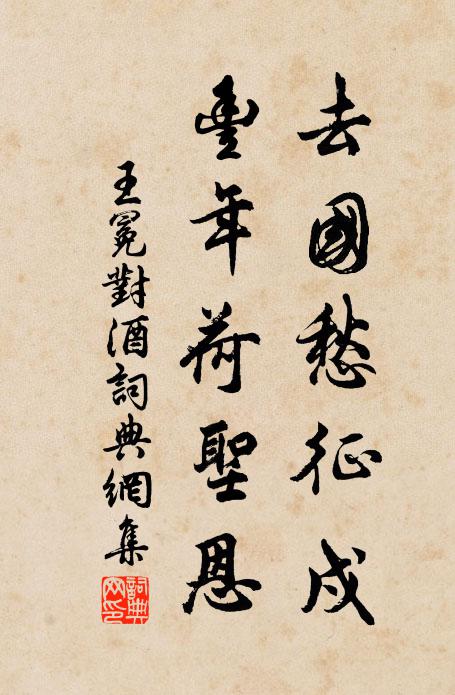 去國愁征戍
豐年荷聖恩
王冕對酒詞典網集
詞典網印